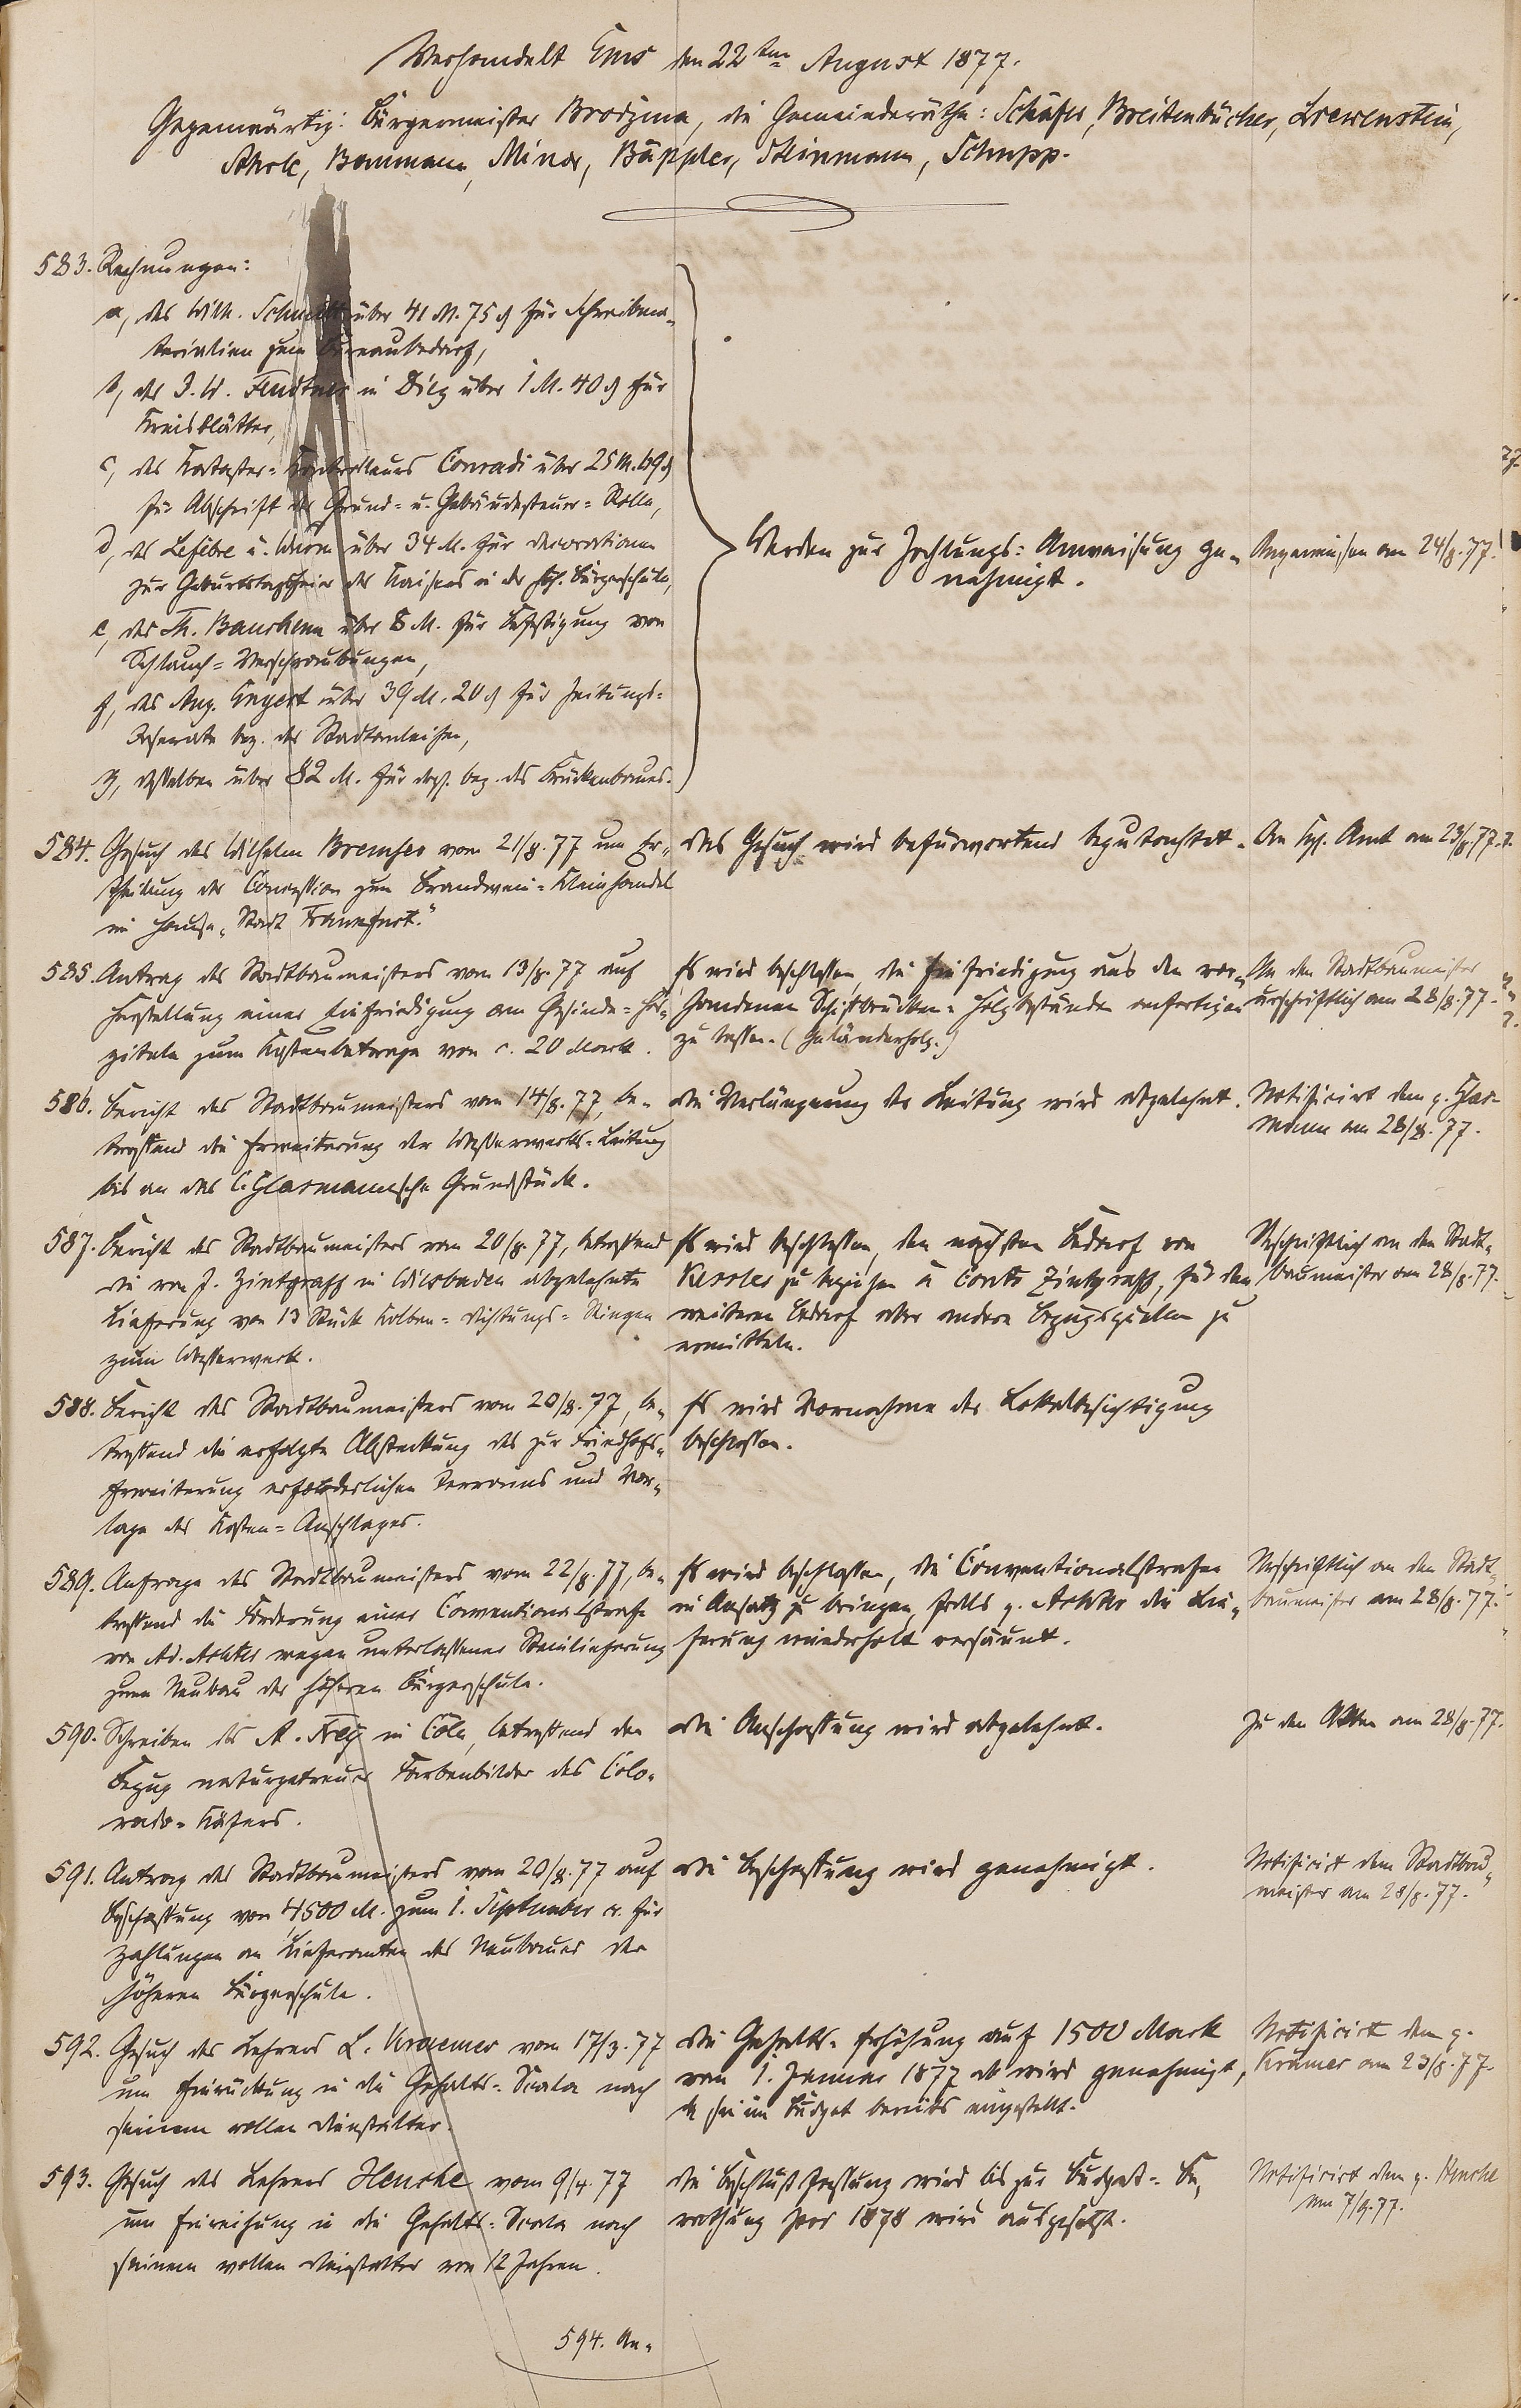 Verhandelt Ems den 22ten August 1877.
Gegenwärtig: Bürgermeister Brodzina, die Gemeinderäthe: Schäfer, Breitenbücher, Loewenstein,
Bommann, Minor, Bäppler, Steinmann, Schupp.
583. Rechnungen:
a, des Wilh. Schmidt über 41 M. 75 ₰ für Schreibma-
terialien zum Bureaubedarf,
b, des J. W. in Diez über 1 M. 40 ₰ für
Kreisblätter,
c, des Kataster-Kontroleurs Conradi über 25 M. 69 ₰
für Abschrift der Grund- u. Gebäudesteuer-Rolle,
d, des Lefébre u. über 34 M. für Decorationen
zur Geburtstagsfeier des Kaisers in der höh. Bürgerschule,
e, des Th. über 8 M. für Befestigung von
Schlauch-Verschraubungen,
f, des Aug. über 39 M. 20 ₰ für Zeitungs-
Inserate bez. der Stadtanleihen,
g, desselben über 82 M. für desgl. bez. des Brückenbaues.
Werden zur Zahlungs-Anweisung ge-
nehmigt.
Angewiesen am 24/8. 77.
584. Gesuch des Wilhelm Bremser vom 21/8. 77 um Er-
theilung der Concession zum Brandwein-Kleinhandel
im Hause „Stadt Frankfurt."
Das Gesuch wird befürwortend begutachtet.
An Kgl. Amt am 23/8. 77.
585. Antrag des Stadtbaumeisters vom 13/8. 77 auf
Herstellung einer Einfriedigung am Gesinde-Hos-
pitale zum Kostenbetrage von c. 20 Mark.
Es wird beschlossen, die Einfriedigung aus den vor-
handenen Schiffbrücken-Holzbestände anfertigen
zu lassen. (Geländerholz.)
An den Stadtbaumeister
urschriftlich am 28/8. 77.
586. Bericht des Stadtbaumeisters vom 14/8. 77, be-
treffend die Erweiterung der Wasserwerks-Leitung
bis an das C. Glasmannsche Grundstück.
Die Verlängerung der Leitung wird abgelehnt.
Notificirt dem p. Glas-
mann am 28/8. 77.
587. Bericht des Stadtbaumeisters vom 20/8. 77, betreffend
die von J. Zintgraff in Wiesbaden abgelehnte
Lieferung von 13 Stück Kolben-Dichtungs-Ringen
zum Wasserwerk.
Es wird beschlossen, den nächsten Bedarf von
Kessler zu beziehen à Conto Zintgraff, für den
weiteren Bedarf aber andere Bezugsquellen zu
ermitteln.
Urschriftlich an den Stadt-
baumeister am 28/8. 77.
588. Bericht des Stadtbaumeisters vom 20/8. 77, be-
treffend die erfolgte Absteckung des zur Friedhofs-
Erweiterung erforderlichen Terrains und Vor-
lage des Kosten-Anschlages.
Es wird Vornahme der Lokalbesichtigung
beschlossen.
589. Anfrage des Stadtbaumeisters vom 22/8. 77, be-
treffend die Forderung einer Conventionalstrafe
von Ad. wegen unterlassener Steinlieferung
zum Neubau der höheren Bürgerschule.
Es wird beschlossen, die Conventionalstrafe
in Ansatz zu bringen, falls p. die Lie-
ferung wiederholt versäumt.
Urschriftlich an den Stadt-
baumeister am 28/8. 77.
590. Schreiben des A. Frey in Cöln, betreffend den
Bezug naturgetreuer Farbenbilder des Colo-
rado-Käfers.
Die Anschaffung wird abgelehnt.
Zu den Akten am 28/8. 77.
591. Antrag des Stadtbaumeisters vom 20/8. 77 auf
Beschaffung von 4500 M. zum 1. September cr. für
Zahlungen an Lieferanten des Neubaues der
höheren Bürgerschule.
Die Beschaffung wird genehmigt.
Notificirt dem Stadtbau-
meister am 28/8. 77.
592. Gesuch des Lehrers L. Kraemer vom 17/3. 77
um Einrückung in die Gehalts-Scala nach
seinem vollen Dienstalter.
Die Gehalts-Erhöhung auf 1500 Mark
vom 1. Januar 1877 ab wird genehmigt,
da sie im Budget bereits eingestellt.
Notificirt dem p.
Krämer am 23/8. 77.
593. Gesuch des Lehrers Henche vom 9/4. 77
um Einreihung in die Gehalts-Scala nach
seinem vollen Dienstalter von 12 Jahren.
Die Beschlußfassung wird bis zur Budget-Be-
rathung pro 1878 wird ausgesetzt.
Notificirt dem p. Henche
am 7/9. 77.
594. An-